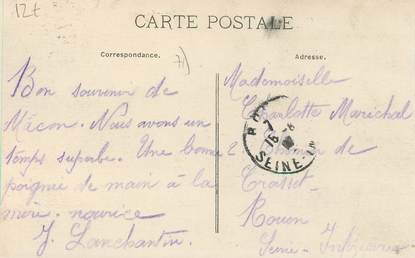 12t
CARTE POSTALE
Correspondance.
Adresse.
71
Bon souvenir de
Mâcon. Nous avons un
temps superbe. Une bonne
poignée de main à la
mère-nourrice
J. Lanchantin.
Mademoiselle
Charlotte Maréchal
2 de
Grasset
Rouen
Seine-Inférieure
RO
7
15 -8
SEINE-IN